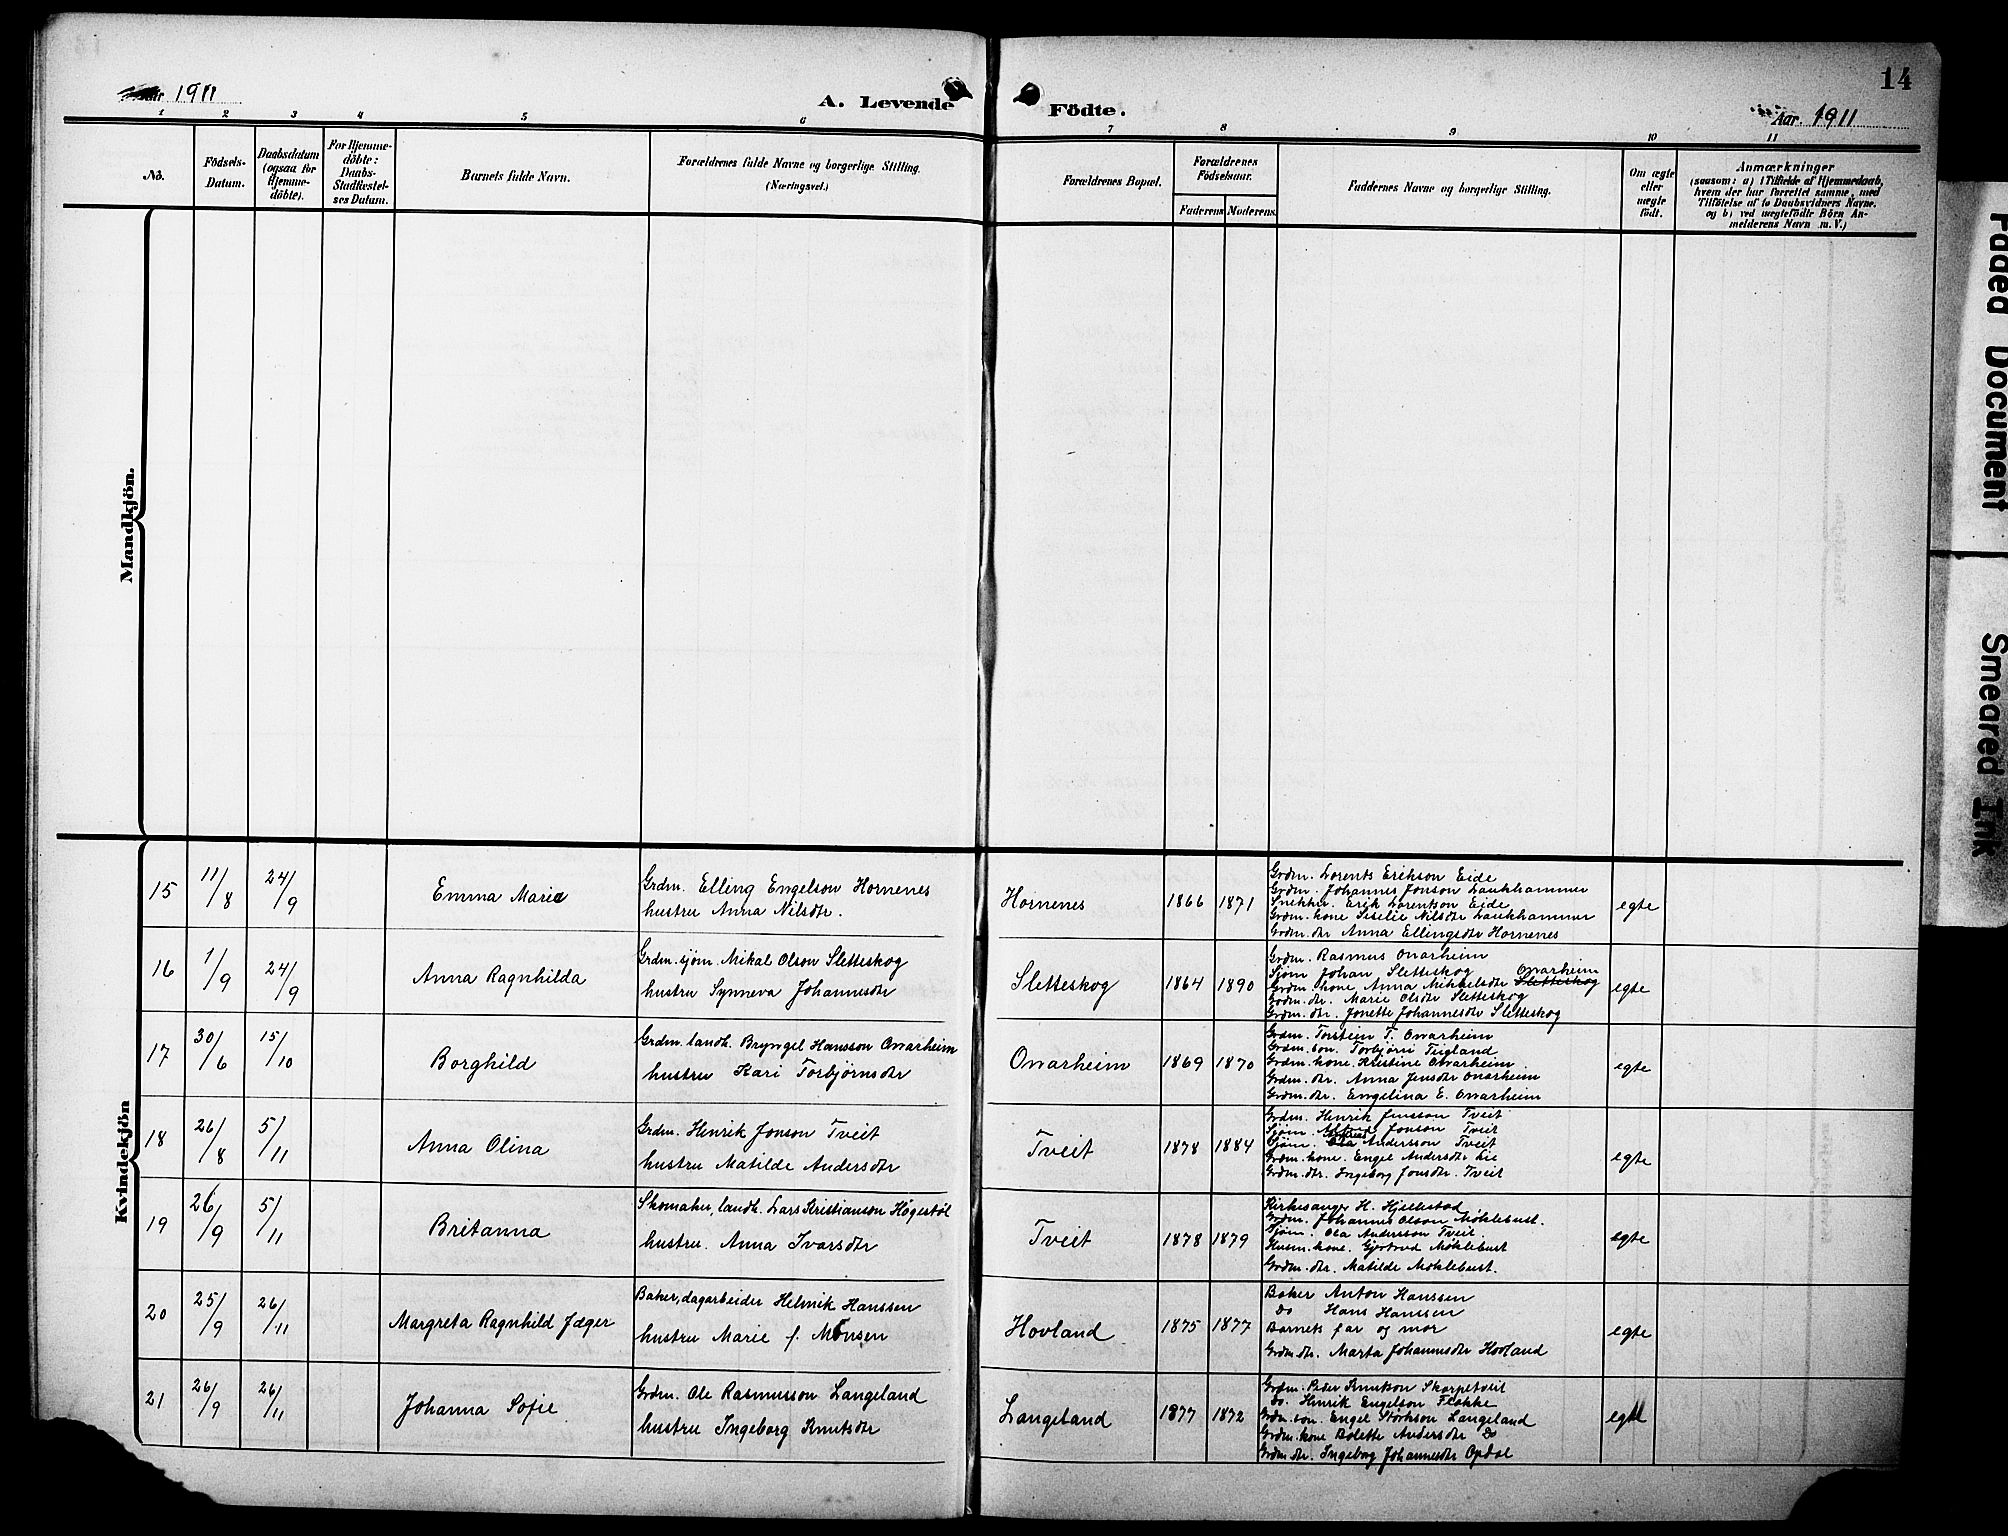 Aar 1911
A. Levende Födte.
14
Aar. 1911
1 2 3 4 5 6 7 8 9 10 11
No.
Födsels-Datum.
Daabsdatum (ogsaa for Hjemme-döbte).
For Hjemme-döbte: Daabs-Stadfæstel-ses Datum.
Barnets fulde Navn.
Forældrenes fulde Navne og borgerlige Stilling.
(Næringsvei.)
Forældrenes Bopæl.
Forældrenes Födselsaar.
Faderens Moderens
Faddernes Navne og borgerlige Stilling.
Om ægte eller uægte födt.
Anmærkninger
(saasom: a) i Tilfælde af Hjemmedaab,
hvem der har forrettet samme, med
Tilföielse af to Daabsvidners Navne.
og b) ved uægtefödte Börn An-
melderens Navn m. V.)
Mandkjön.
Kvindekjön
15 11/8 24/9 Emma Marie
Grdm. Elling Engelson Hornenes
hustru Anna Nilsdtr.
Hornenes 1866 1871
Grdm. Lorents Erikson Eide
Grdm. Johannes Jonson Laukhammer
Snekker. Erik Lorentson Eide
Grdm. kone Siselie Nilsdtr Laukhammer
Grdm. dtr Anna Ellingsdtr Hornenes
egte
16 1/9 24/9 Anna Ragnhilda
Grdm. sjøm. Mikal Olson Sletteskog
hustru Synneva Johannesdtr
Sletteskog 1864 1890
Grdm. Rasmus Onarheim
Sjøm Johan Sletteskog Onarheim
Grdm. kone Anna Mikkelsdtr Sletteskog
Grdm. dtr. Marie Olsdtr Sletteskog
Grdm. dtr. Jonette Johannesdtr Sletteskog
egte
17 30/6 15/10 Borghild
Grdm. landh. Bryngel Hansson Onarheim
hustru Kari Torbjørnsdtr
Onarheim 1869 1870
Grdm. Torstein T. Onarheim
Grdm. son. Torbjørn Tugland
Grdm. kone Kristine Onarheim
Grdm. dtr. Anna Jensdtr Onarheim
Grdm. dtr. Engelina E. Onarheim
egte
18 26/8 5/11 Anna Olina
Grdm. Henrik Jonson Tveit
hustru Matilde Andersdtr
Tveit 1878 1884
Grdm. Henrik Jensson Tveit
Sjøm. Jonson Tveit
Sjøm. Ola Andersson Tveit
Grdm. kone. Engel Andersdtr Lie
Grdm. dtr. Ingeborg Jonsdtr. Tveit
egte
19 26/9 5/11 Britanna
Skomaker, landh. Lars Kristianson Høgestøl
hustru. Anna Ivarsdtr
Tveit 1878 1879
Kirkesanger H. Hjellestad
Grdm. Johannes Olson Møklebust.
Sjøm. Ola Andersson Tveit.
Husm. kone. Gjertrud Møklebust
Grdm. dtr. Matilde Møklebust.
egte
20 25/9 26/11 Margreta Ragnhild Jæger
Baker, dagarbeider Helmik Hanssen
hustru Marie f. Monsen
Hovland 1875 1877
Baker Anton Hanssen
Do Hans Hanssen
Barnets far og mor
Grdm. dtr. Marta Johannesdtr Hovland
egte
21 26/9 26/11 Johanna Sofie
Grdm. Ole Rasmusson Langeland
hustru Ingeborg Knutsdtr
Langeland 1877 1872
Grdm. Peder Knutson Skarpetveit
Do. Henrik Engelson Flokke
Grdm. son. Engel Størkson Langeland
Grdm. kone Bolette Andersdtr Do
Grdm. dtr. Ingeborg Johannesdtr Opdal
egte
Faded Document
Smeared Ink